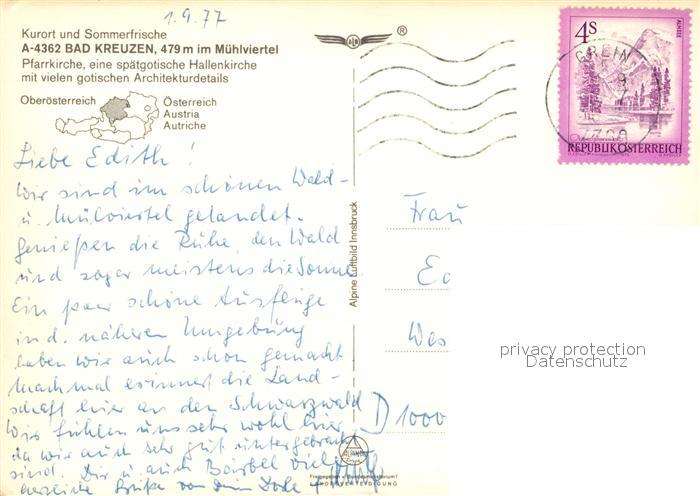 1.9.77
Kurort und Sommerfrische
A-4362 BAD KREUZEN, 479 m im Mühlviertel
Pfarrkirche, eine spätgotische Hallenkirche
mit vielen gotischen Architekturdetails
Oberösterreich
Österreich
Austria
Autriche
®
4S
ALMSEE
REPUBLIK ÖSTERREICH
GREIN
Liebe Edith!
Wir sind im schönen Wald-
u. Mülviertel gelandet.
genießen die Ruhe, den Wald
und sogar meistens die Sonne.
Ein paar schöne Ausflüge
in d. näheren Umgebung
haben wir auch schon gemacht
Machmal erinnert die Land-
schaft hier an den Schwarzwald
Wir fühlen uns sehr wohl hier,
da wir auch sehr gut untergebracht
sind. Dir u. auch Bärbel viele
herzliche Grüße von
Alpine Luftbild Innsbruck
Frau
Ed
Wes
D 1000
privacy protection
Datenschutz
Freigegeben v. Bundesministerium f.
LANDESVERTEIDIGUNG